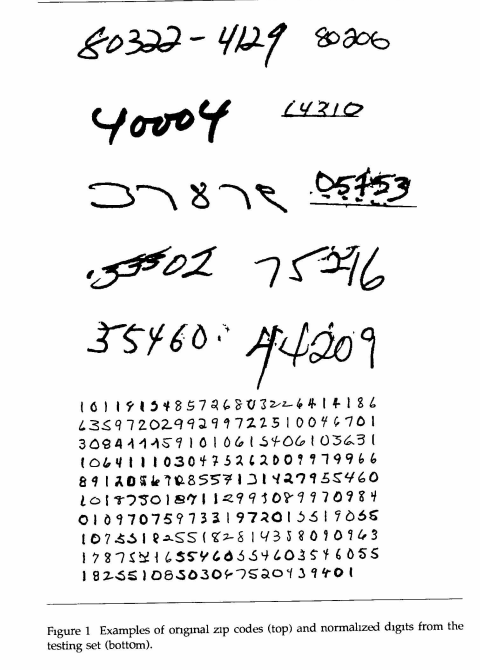 80322-4129 80206
40004 14310
37878 05753
35502 75216
35460 44209
1011915485726803226414186
6359720299299722510046701
3084111591010615406103631
1064111030475262009979966
8912056708557131427955460
1018730187112993089970984
0109707597331972015519055
1075518255182814358090963
1787521655460554603546055
18255108503047520439401
Figure 1 Examples of original zip codes (top) and normalized digits from the
testing set (bottom).